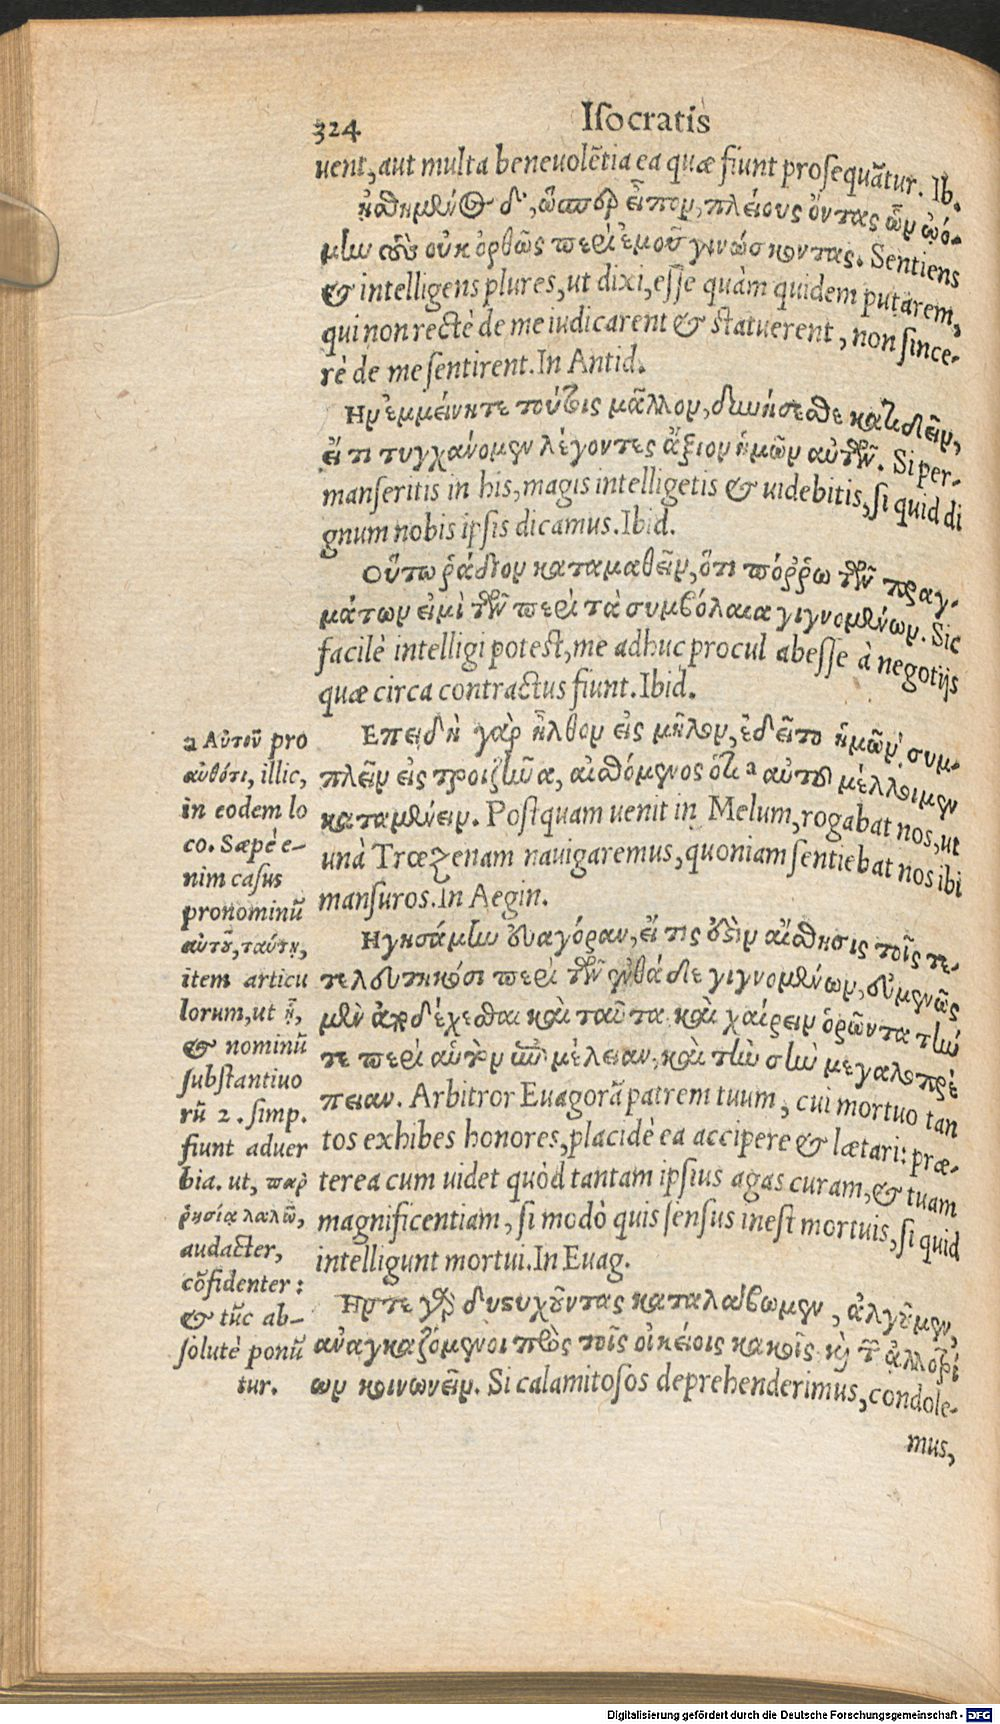 324 Iſocratis
uent, aut multa beneuolẽtia ea quæ fiunt proſequãtur. Ib.
ᾐσθημένος δ', ὥσπερ εἶπον, πλείους ὄντας ὧν ᾠό-
μίω τοὺς οὐκ ὀρθῶς περὶ ἐμοῦ γινώσκοντας. Sentiens
& intelligens plures, ut dixi, eſſe quàm quidem putarem,
qui non rectè de me iudicarent & ſtatuerent, non ſince-
rè de me ſentirent. In Antid.
Ην ἐμμείνητε τούτοις μᾶλλον, δυνήσεσθε κατιδεῖν,
εἴ τι τυγχάνομεν λέγοντες ἄξιον ἡμῶν αὐτῶν. Si per-
manſeritis in his, magis intelligetis & uidebitis, ſi quid di
gnum nobis ipſis dicamus. Ibid.
Οὕτω ῥᾴδιον καταμαθεῖν, ὅτι πόῤῥω τῶν πραγ-
μάτων εἰμὶ τῶν περὶ τὰ συμβόλαια γιγνομένων. Sic
facilè intelligi poteſt, me adhuc procul abeſſe à negotijs
quæ circa contractus fiunt. Ibid.
Επειδὴ γὰρ ἦλθον εἰς μῆλον, ἐδεῖτο ἡμῶν συμ-
πλεῖν εἰς τροιζῆνα, αἰσθόμενος ὅτι a αὐτοῦ μέλλοιμεν
καταμένειν. Poſtquam uenit in Melum, rogabat nos, ut
unà Trœzenam nauigaremus, quoniam ſentiebat nos ibi
manſuros. In Aegin.
Ηγησάμην εὐαγόραν, εἴ τις ἐστὶν αἴσθησις τοῖς τε-
τελευτηκόσι περὶ τῶν ἐνθάδε γιγνομένων, εὐμενῶς
μὲν ἀποδέχεσθαι καὶ ταῦτα καὶ χαίρειν ὁρῶντα τήν
τε περὶ αὑτὸν ἐπιμέλειαν, καὶ τὴν σὴν μεγαλοπρέ
πειαν. Arbitror Euagorã patrem tuum, cui mortuo tan
tos exhibes honores, placidè ea accipere & lætari: præ-
terea cum uidet quòd tantam ipſius agas curam, & tuam
magnificentiam, ſi modò quis ſenſus ineſt mortuis, ſi quid
intelligunt mortui. In Euag.
Ην τε γὰρ δυςυχοῦντας καταλάβωμεν, ἀλγοῦμεν,
ἀναγκαζόμενοι πρὸς τοῖς οἰκείοις κακοῖς καὶ τῶν ἀλλοτρί
ων κοινωνεῖν. Si calamitoſos deprehenderimus, condole-
mus,
a Αὐτοῦ pro
αὐθότι, illic,
in eodem lo
co. Sæpè e-
nim caſus
pronominũ
αὐτοῦ, ταύτῃ,
item articu
lorum, ut ᾗ,
& nominũ
ſubſtantiuo
rũ 2. ſimp.
fiunt aduer
bia. ut, παρ
ῥησίᾳ λαλῶ,
audacter,
cõfidenter:
& tũc ab-
ſolutè ponũ
tur.
Digitalisierung gefördert durch die Deutsche Forschungsgemeinschaft - DFG